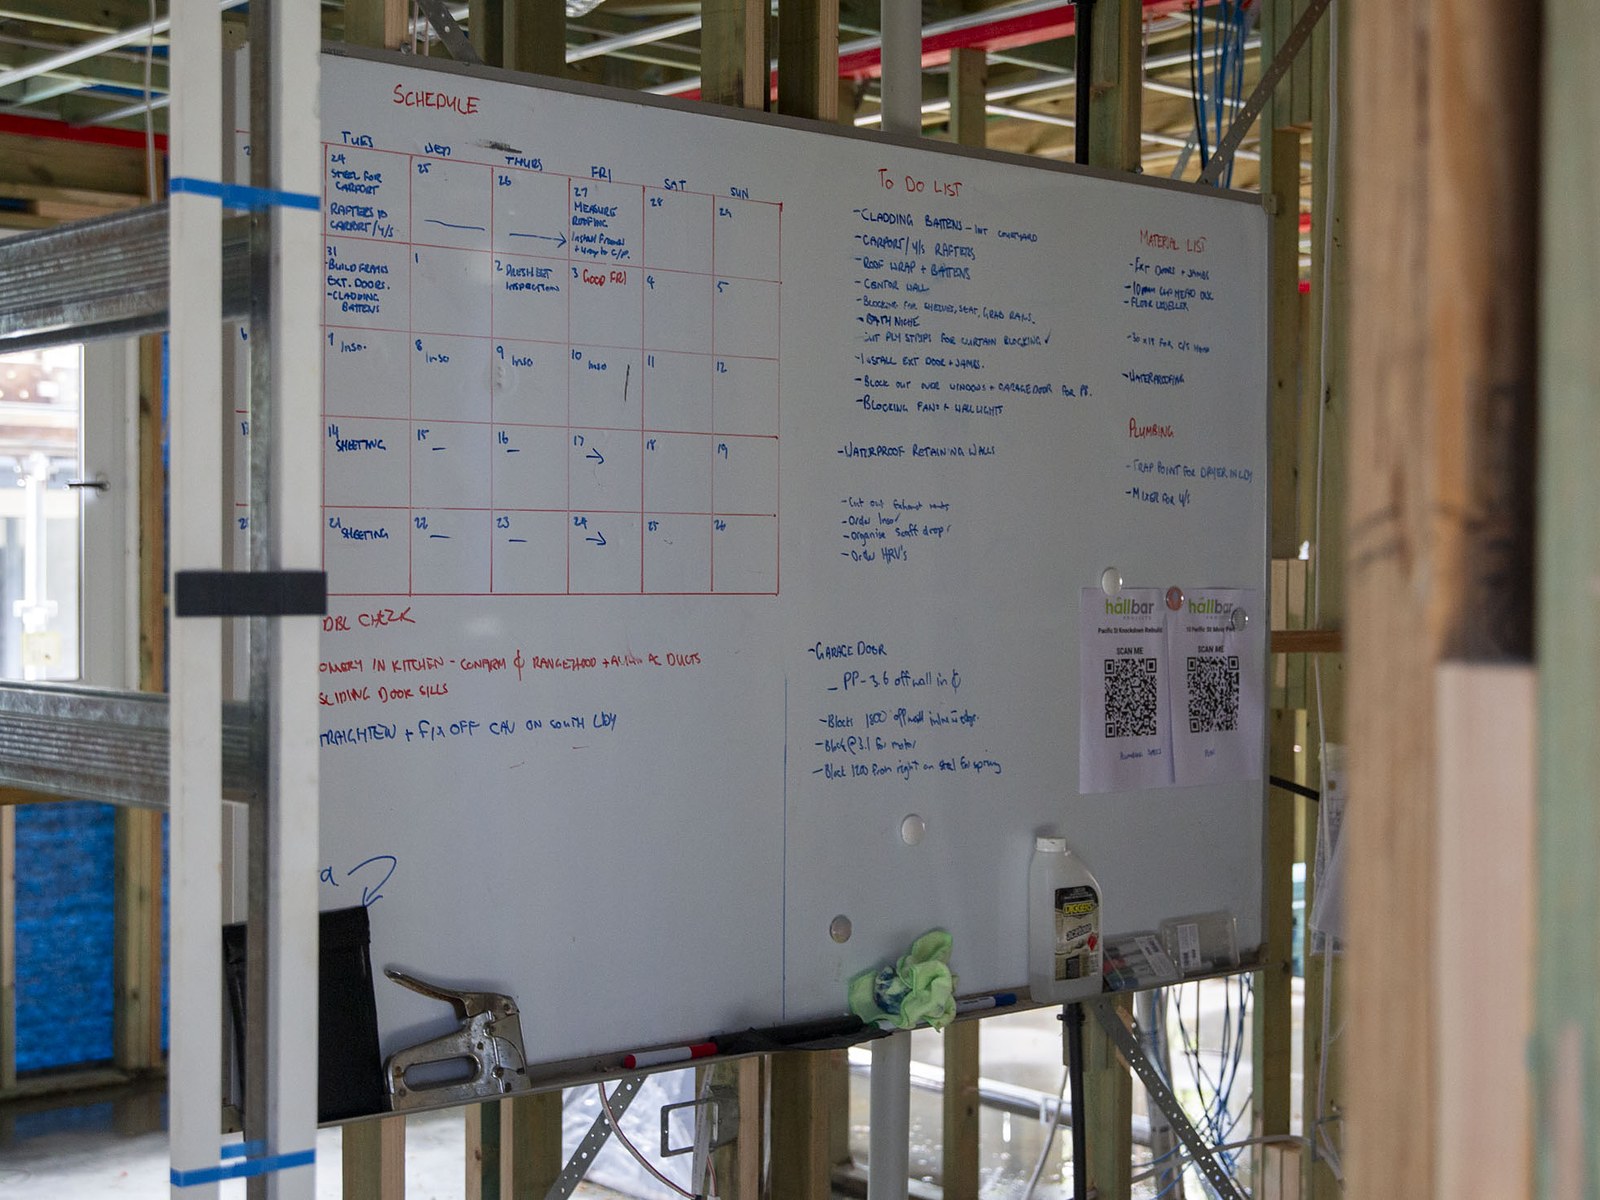 SCHEDULE
TUES WED THURS FRI SAT SUN
24 25 26 27 28 29
STEEL FOR
CARPORT
RAFTERS TO
CARPORT/Y/S
MEASURE
ROOFING
Install Frames
31 1 2 3 4 5
-BUILD FRAMES
EXT. DOORS.
-CLADDING
BATTENS
PRESHEET
INSPECTION
GOOD FRI
7 8 9 10 11 12
Inso. Inso Inso Inso
14 15 16 17 18 19
SHEETING
21 22 23 24 25 26
SHEETING
DBL CHECK
IN KITCHEN - CONFIRM RANGEHOOD + AC DUCTS
SLIDING DOOR SILLS
+ FIX OFF CAV ON SOUTH LDY
TO DO LIST
-CLADDING BATTENS - INT COURTYARD
-CARPORT/Y/S RAFTERS
-ROOF WRAP + BATTENS
-CENTOR WALL
-BLOCKING FOR SHELVES, SEAT, GRAB RAILS.
-BATH NICHE
CUT PLY STRIPS FOR CURTAIN BLOCKING ✓
-INSTALL EXT DOOR + JAMBS.
-BLOCK OUT OVER WINDOWS + GARAGE DOOR FOR PB.
-BLOCKING FANS + WALL LIGHTS
-WATERPROOF RETAINING WALLS
-Cut out Exhaust vents
-Order Inso ✓
-Organise Scaff drop ✓
-Order HRV's
-GARAGE DOOR
- PP-3.6 off wall in
-Blocks 1800 off wall
-Block @ 3.1 for motor
-Block 1200 from right on steel for spring
MATERIAL LIST
-EXT DOORS + JAMBS
-FLOOR LEVELLER
-WATERPROOFING
PLUMBING
-TRAP POINT FOR DRYER IN LDY
-MIXER FOR Y/S
hallbar
PROJECTS
Pacific St Knockdown Rebuild
SCAN ME
hallbar
SCAN ME
DIGGERS
acetone